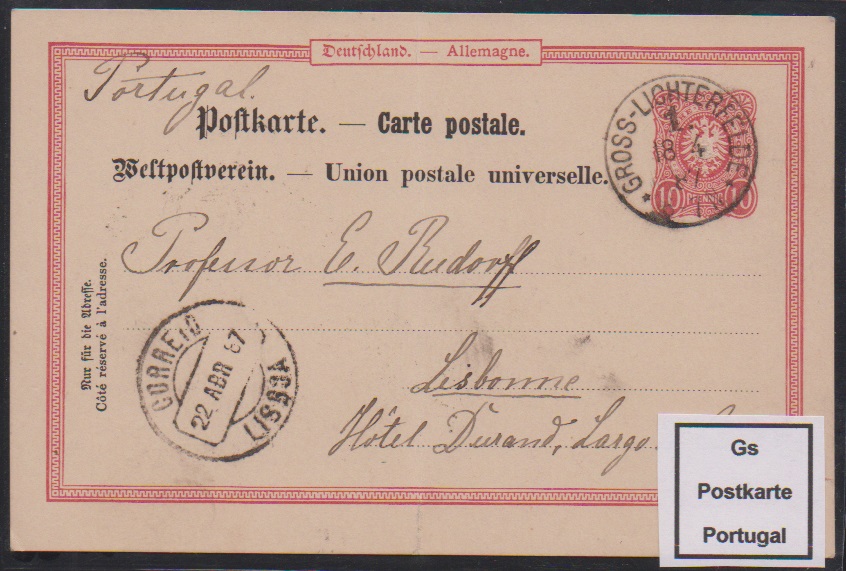 Deutschland. — Allemagne.
Portugal.
Postkarte. — Carte postale.
Weltpostverein. — Union postale universelle.
* GROSS-LICHTERFELDE *
1
18 4
87
10 PFENNIG 10
Professor E. Rudorff
Nur für die Adresse.
Côté réservé à l'adresse.
CORREIO
22 ABR 87
LISBOA
Lisbonne
Hôtel Durand, Largo
Gs
Postkarte
Portugal